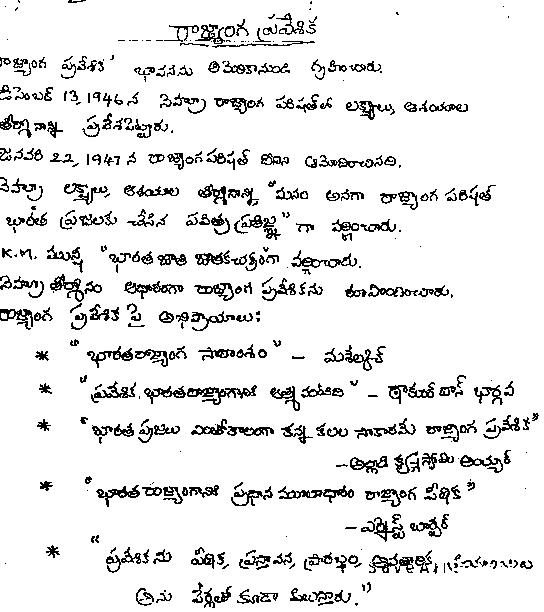 రాజ్యాంగ ప్రవేశిక
రాజ్యాంగ ప్రవేశిక' భావనను అమెరికానుండి గ్రహించారు.
డిసెంబర్ 13, 1946 న నెహ్రూ రాజ్యాంగ పరిషత్‌లో లక్ష్యాలు, ఆశయాల
తీర్మానాన్ని ప్రవేశపెట్టారు.
జనవరి 22, 1947 న రాజ్యాంగపరిషత్ దీనిని ఆమోదించినది.
నెహ్రూ లక్ష్యాలు, ఆశయాల తీర్మానాన్ని "మనం అనగా రాజ్యాంగ పరిషత్
భారత ప్రజలకు చేసిన పవిత్ర ప్రతిజ్ఞ" గా వర్ణించారు.
K.M. మున్షీ "భారత జాతి జాతకచక్రం"గా వర్ణించారు.
నెహ్రూ తీర్మానం ఆధారంగా రాజ్యాంగ ప్రవేశికను రూపొందించారు.
రాజ్యాంగ ప్రవేశిక పై అభిప్రాయాలు:
* "భారతరాజ్యాంగ సారాంశం" –
* "ప్రవేశిక, భారతరాజ్యాంగానికి ఆత్మ వంటిది" – ఠాకూర్ దాస్ భార్గవ
* "భారత ప్రజలు ఎంతోకాలంగా కన్న కలల సాకారమే రాజ్యాంగ ప్రవేశిక"
– అల్లాడి కృష్ణస్వామి అయ్యర్
* "భారత రాజ్యాంగానికి ప్రధాన మూలాధారం రాజ్యాంగ పీఠిక"
– ఎర్నెస్ట్ బార్కర్
* "ప్రవేశికను పీఠిక, ప్రస్తావన, ప్రారంభం,
అను పేర్లతో కూడా పిలుస్తారు."